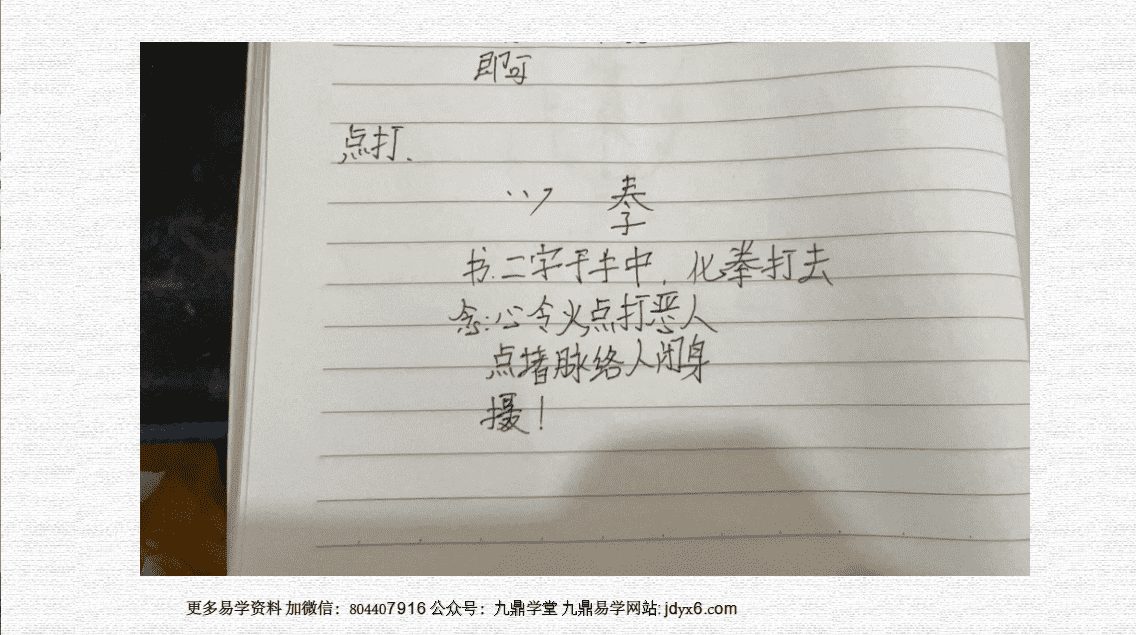 即可
点打.
书二字于手中,化拳打去
念:心令火点打恶人
点堵脉络人闭身
摄!
更多易学资料 加微信:804407916 公众号:九鼎学堂 九鼎易学网站: jdyx6.com